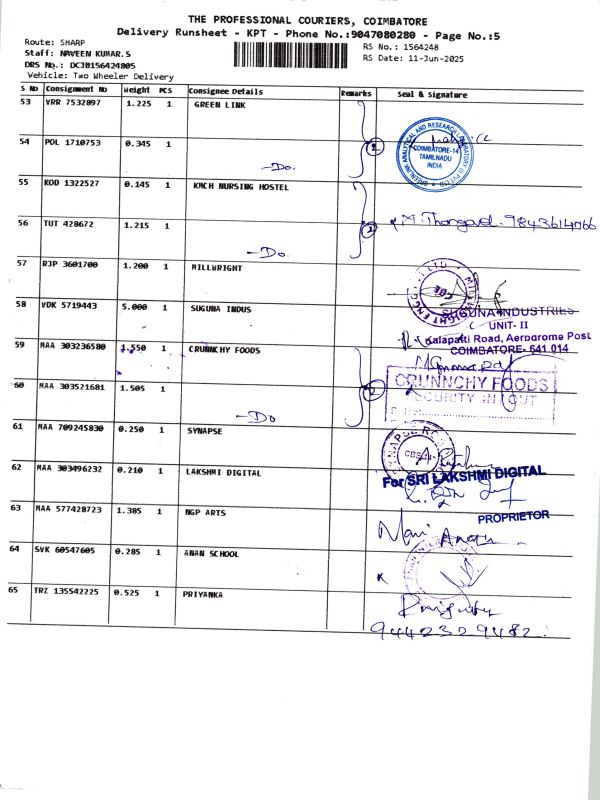 THE PROFESSIONAL COURIERS, COIMBATORE
Delivery Runsheet - KPT - Phone No.:9047080280 - Page No.:5
Route: SHARP
RS No.: 1564248
Staff: NAVEEN KUMAR.S
RS Date: 11-Jun-2025
DRS No.: DCJB156424805
Vehicle: Two Wheeler Delivery
S No Consignment No Weight PCS Consignee Details Remarks Seal & Signature
53 VRR 7532897 1.225 1 GREEN LINK
54 POL 1710753 0.345 1 -Do. 2
GREENLINK ANALYTICAL AND RESEARCH LABORATORY (I) PVT LTD
COIMBATORE-14
TAMILNADU
INDIA
55 KOD 1322527 0.145 1 KMCH NURSING HOSTEL
56 TUT 428672 1.215 1 -Do. 2 9843614766
57 RJP 3601700 1.200 1 MILLWRIGHT
58 VDK 5719443 5.000 1 SUGUNA INDUS
SUGUNA INDUSTRIES
UNIT- II
Kalapatti Road, Aerodrome Post
COIMBATORE- 641 014
59 MAA 303236580 1.550 1 CRUNNCHY FOODS
60 MAA 303521681 1.505 1 -Do 2
CRUNNCHY FOODS
SECURITY IN / OUT
61 MAA 709245830 0.250 1 SYNAPSE
62 MAA 303496232 0.210 1 LAKSHMI DIGITAL
For SRI LAKSHMI DIGITAL
PROPRIETOR
63 MAA 577428723 1.385 1 NGP ARTS
64 SVK 60547605 0.285 1 ANAN SCHOOL
65 TRZ 135542225 0.525 1 PRIYANKA
9442329482